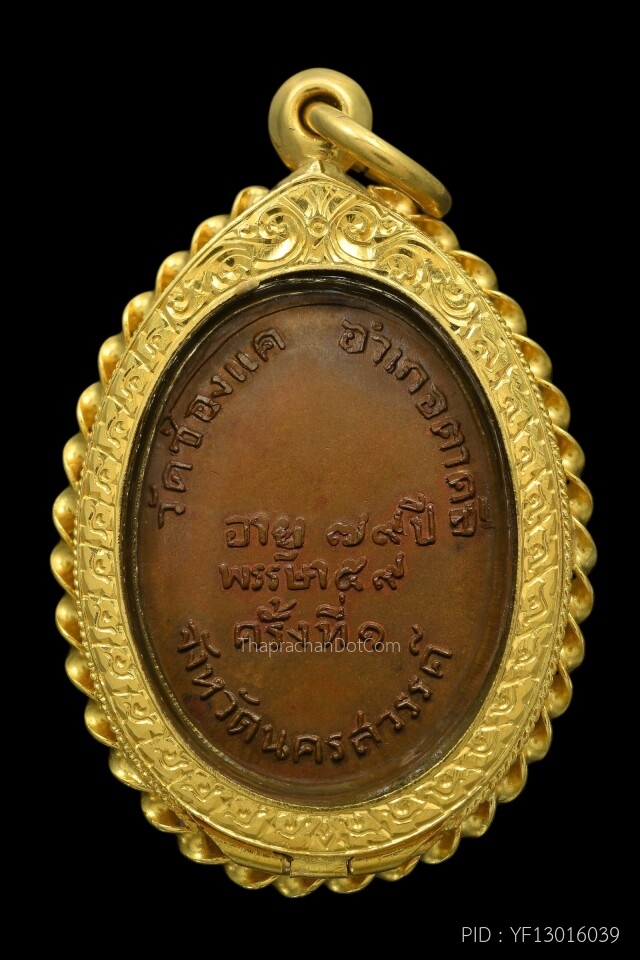 วัดช่องแค อำเภอตาคลี
อายุ ๗๙ ปี
พรรษา ๕๙
ครั้งที่ ๑
จังหวัดนครสวรรค์
ThaprachanDotCom
PID : YF13016039